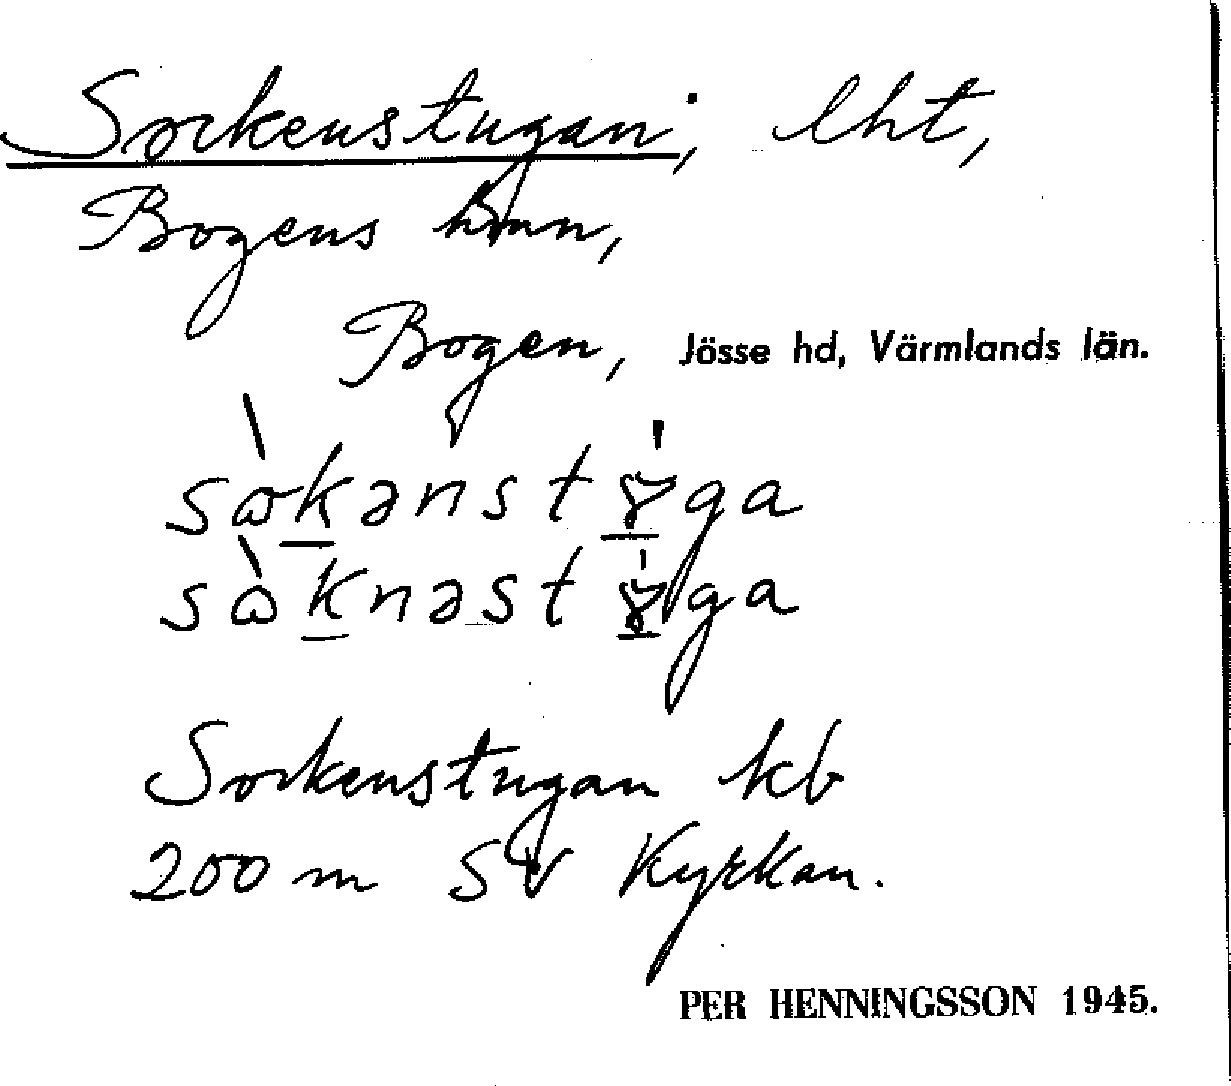 Sockenstugan, lht,
Bogens hmn,
Bogen, Jösse hd, Värmlands län.
Sockenstugan kb
200 m SV Kyrkan.
PER HENNINGSSON 1945.